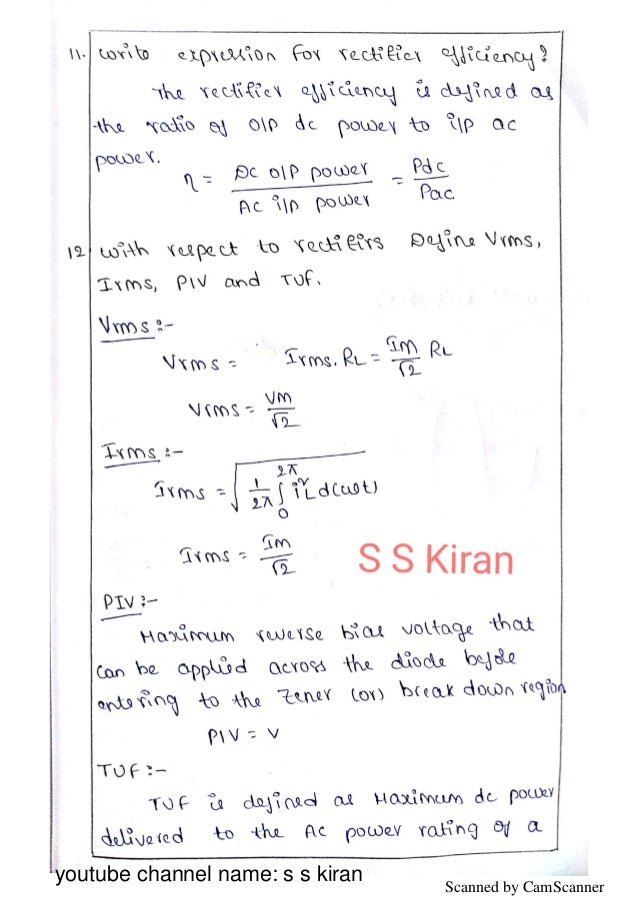 11. Write expression for rectifier efficiency?
The rectifier efficiency is defined as
the ratio of o/p dc power to i/p ac
power.
η = DC o/p power / AC i/p power = Pdc / Pac
12 with respect to rectifirs Define Vrms,
Irms, PIV and TUF.
Vrms :-
Vrms = Irms. RL = Im/√2 RL
Vrms = Vm/√2
Irms :-
Irms = √(1/2π ∫₀^2π i²L d(ωt))
Irms = Im/√2
S S Kiran
PIV :-
Maximum reverse bias voltage that
can be applied across the diode before
entering to the Zener (or) break down region
PIV = V
TUF :-
TUF is defined as Maximum dc power
delivered to the AC power rating of a
youtube channel name: s s kiran
Scanned by CamScanner